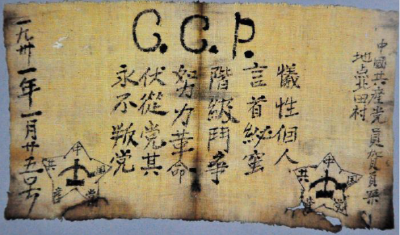 C.C.P.
中國共産党員賀頁朵
地点北田村
犧牲個人
言首秘蜜
階級鬥争
努力革命
伏從党其
永不叛党
一九卅一年一月廿五日